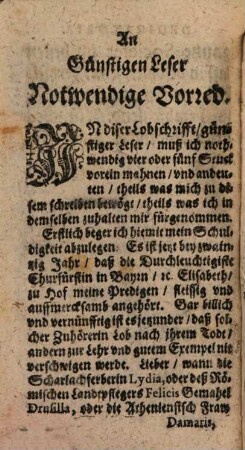 An
Günstigen Leser
Notwendige Vorred.
IN diser Lobschrifft / günstiger
Leser / muß ich nothwendig
vier oder fünf Stuck
vorein mahnen / vnd andeuten
/ theils was mich zu disem
schreiben bewögt / theils was ich in
demselben zuhalten mir fürgenommen.
Erstlich beger ich hiemit mein Schuldigkeit
abzulegen. Es ist jetz bey zwaintzig
Jahr / daß die Durchleuchtigiste
Churfürstin in Bayrn / ꝛc. Elisabeth /
zu Hof meine Predigen / fleissig vnd
auffmercksamb angehört. Gar billich
vnd vernünfftig ist es jetzunder / daß solcher
Zuhörerin Lob nach jhrem Todt /
andern zur Lehr vnd gutem Exempel nit
verschwigen werde. Lieber / wann die
Scharlachferberin Lydia, oder deß Römischen
Landtpflegers Felicis Gemahel
Drusilla, oder die Atheniensisch Fraw
Damaris,